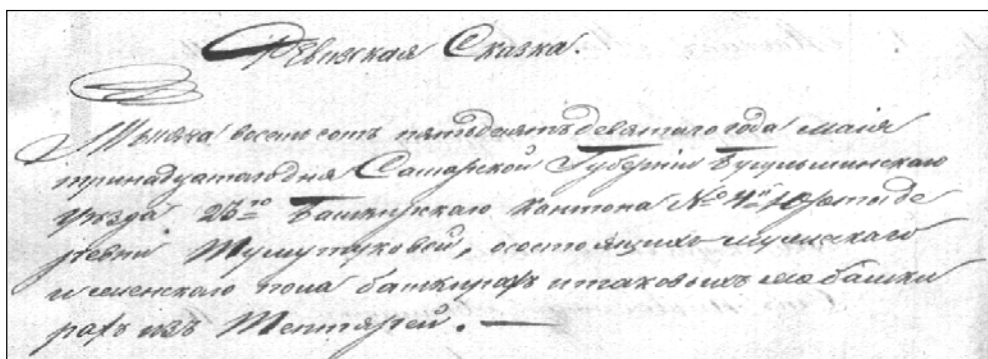 Ревизская Сказка.
Тысяча восемь сотъ пятьдесятъ девятаго года маія
тринадцатаго дня Самарской Губерніи Бугульминскаго
уѣзда 25го Башкирскаго Кантона № 4й Юрты де
ревни Тумутуковой, о состоящихъ мужскаго
и женскаго пола башкирахъ и таковыхъ же башки
рахъ изъ Тептярей.